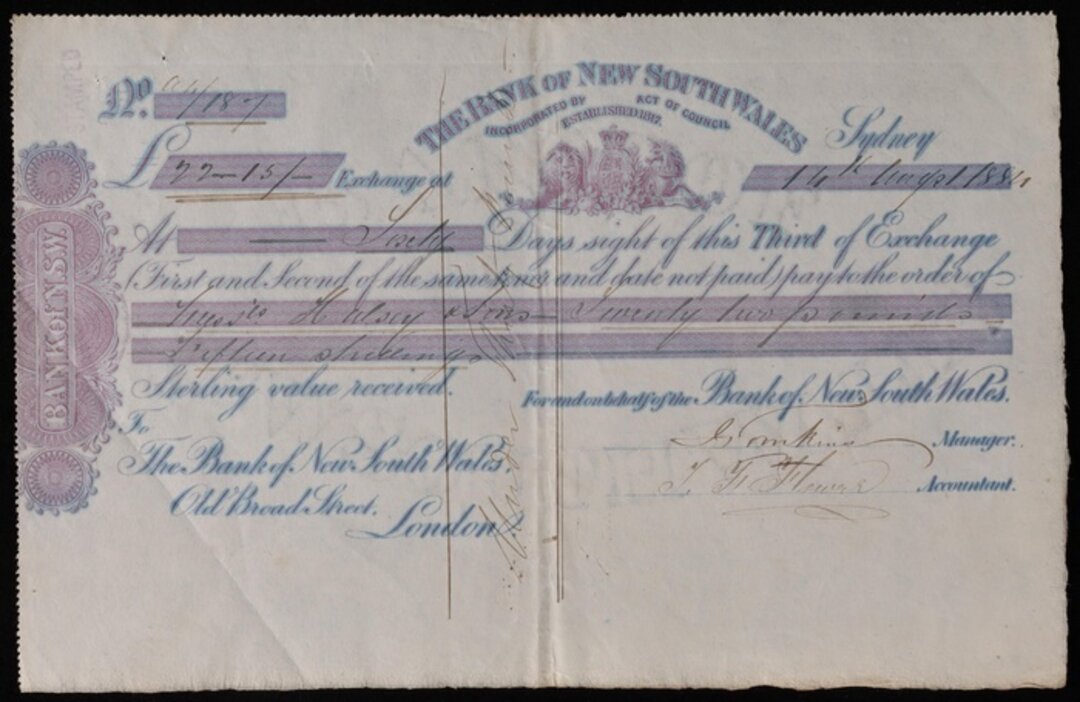 STAMPED
No. /187
THE BANK OF NEW SOUTH WALES
INCORPORATED BY ACT OF COUNCIL
ESTABLISHED 1817.
Sydney
£ 22-15/- Exchange at
14th 188
At Sixty Days sight of this Third of Exchange
(First and Second of the same tenor and date not paid) pay to the order of
Halsey & Sons Twenty two pounds
Fifteen shillings
Sterling value received.
For and on behalf of the Bank of New South Wales.
To
The Bank of New South Wales.
Manager.
Old Broad Street.
Accountant.
London
BANK of N.S.W.